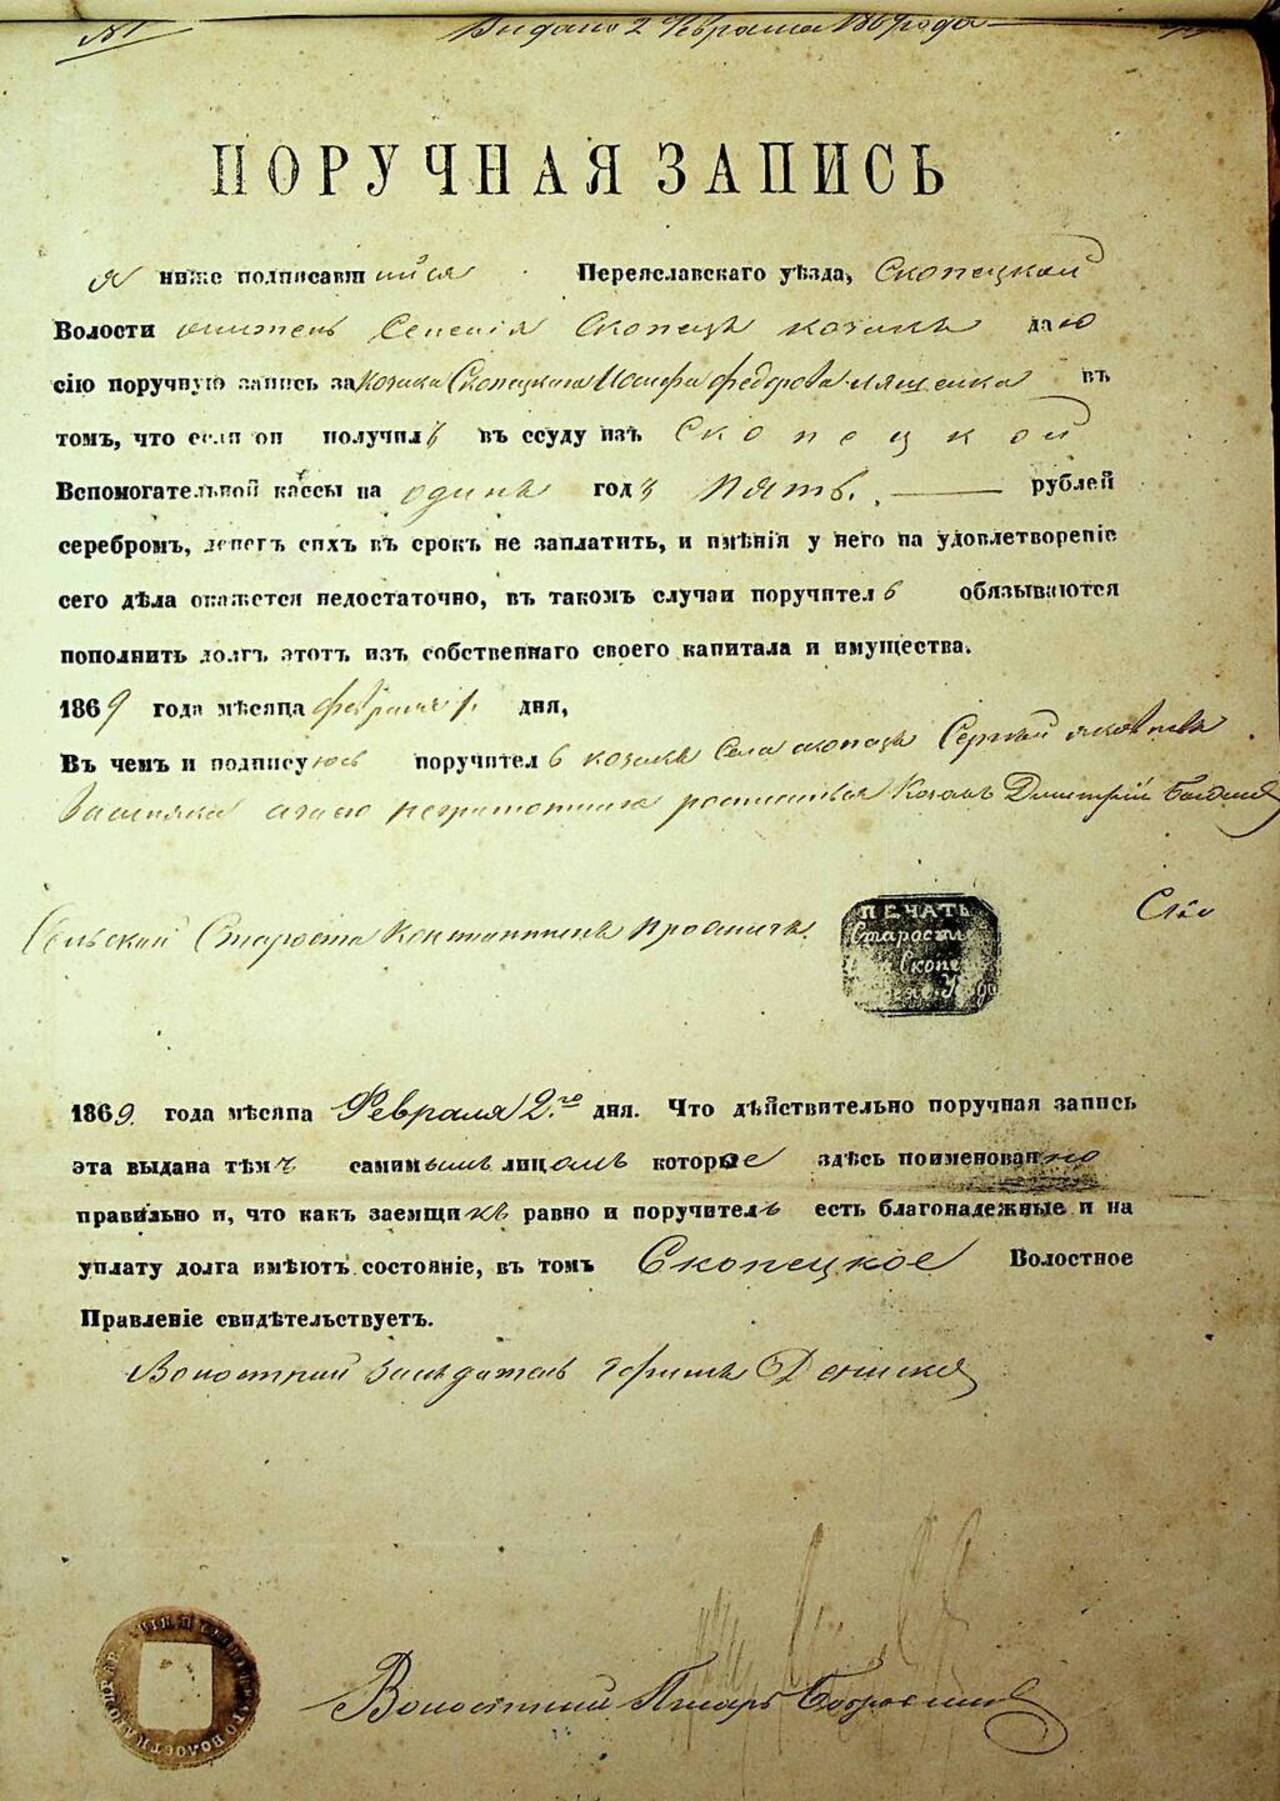 №
Видано 2 Февраля 1869 года
ПОРУЧНАЯ ЗАПИСЬ
Я ниже подписавшийся Переяславскаго уѣзда, Скопецкой
Волости житель Селенія Скопецъ козакъ даю
сію поручную запись за козака Скопецкого Іосифа Федорова Ляшенка въ
томъ, что если он получилъ въ ссуду изъ Скопецкой
Вспомогательной кассы на одинъ годъ пять. рублей
серебромъ, денегъ сихъ въ срокъ не заплатить, и имѣнія у него на удовлетвореніе
сего дѣла окажется недостаточно, въ такомъ случаи поручитель обязываются
пополнить долгъ этотъ изъ собственнаго своего капитала и имущества.
1869 года мѣсяца февраля 1. дня,
Въ чемъ и подписуюсь поручитель козакъ Села Скопецъ Сергѣй Яковлевъ
росписался Козакъ Димитрій
Сельский Староста Константинъ
ПЕЧАТЬ
Старосты
Скопе
1869. года мѣсяца Февраля 2го дня. Что дѣйствительно поручная запись
эта выдана тѣмъ самимъ лицомъ которые здѣсь поименованно
правильно и, что какъ заемщикъ равно и поручитель есть благонадежные и на
уплату долга имѣютъ состояніе, въ томъ Скопецкое Волостное
Правленіе свидѣтельствуетъ.
Волостний засѣдатель Денис
Волостний Писарь